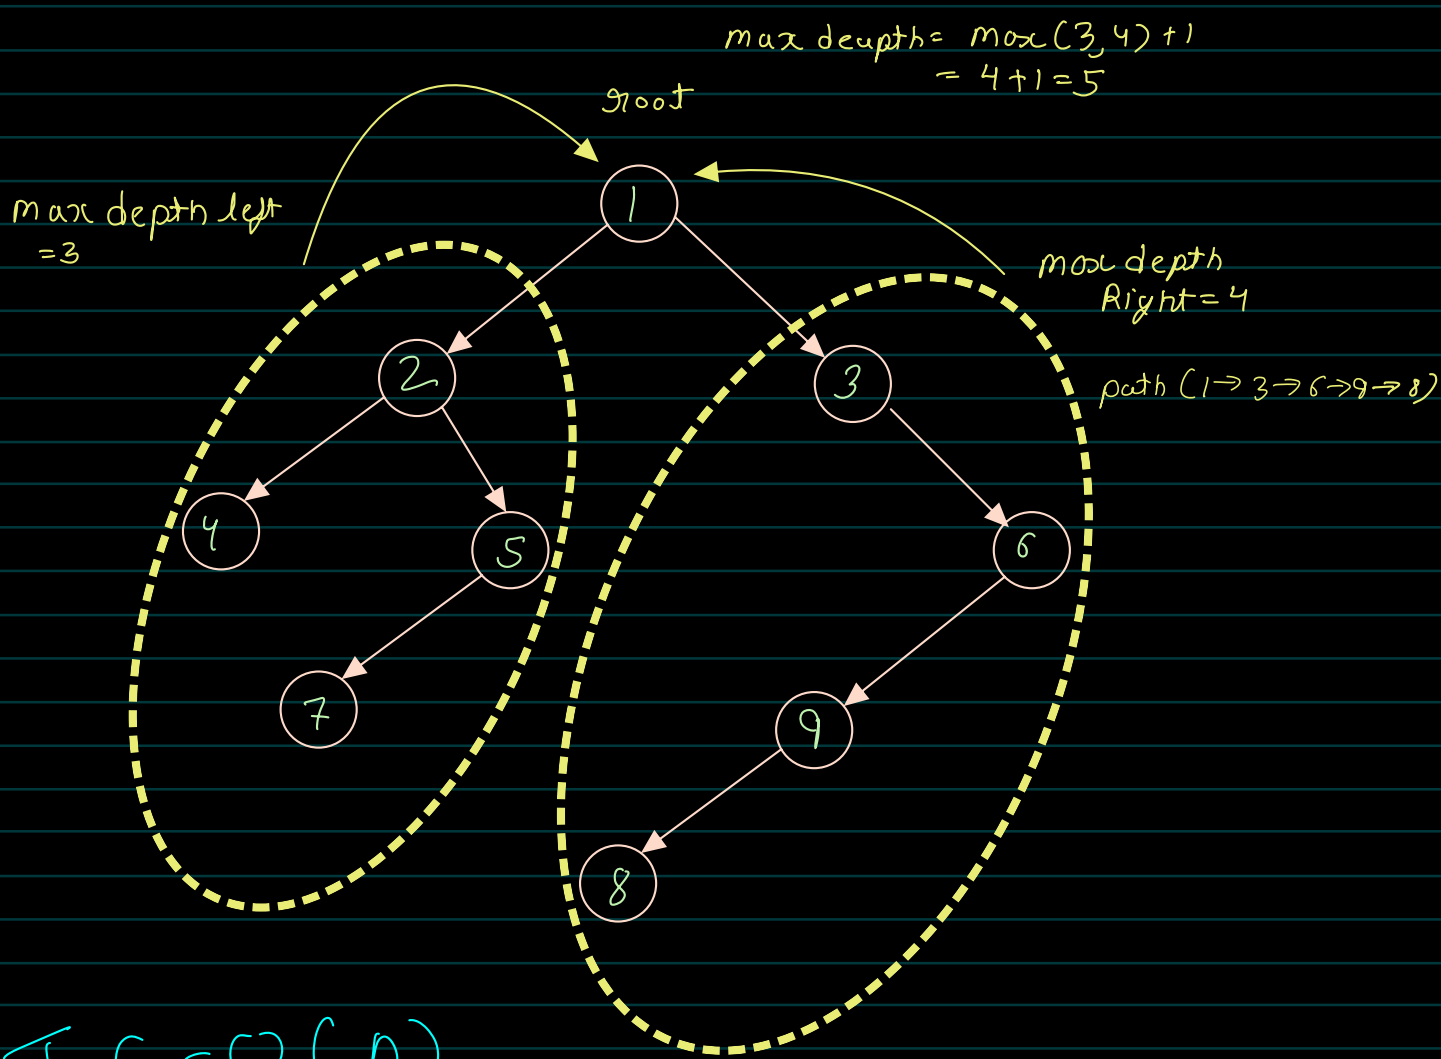 max deapth = max(3,4)+1
= 4+1=5
root
1
max depth left
=3
max depth
Right=4
path (1→3→6→9→8)
2
3
4
5
6
7
9
8